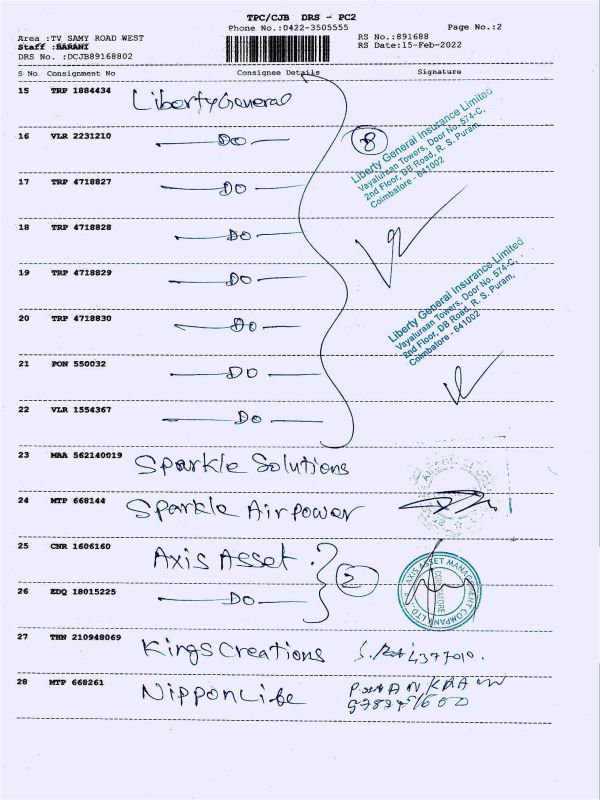 TPC/CJB DRS - PC2
Phone No.:0422-3505555
Page No.:2
Area :TV SAMY ROAD WEST
RS No.:891688
Staff :BARANI
RS Date:15-Feb-2022
DRS No. :DCJB89168802
S No Consignment No Consignee Details Signature
15 TRP 1884434 Liberty General
16 VLR 2231210 DO 8
Liberty General Insurance Limited
Vayaluraan Towers, Door No. 574-C,
2nd Floor, DB Road, R. S. Puram,
Coimbatore - 641002
17 TRP 4718827 DO
18 TRP 4718828 DO
19 TRP 4718829 DO
Liberty General Insurance Limited
Vayaluraan Towers, Door No. 574-C,
2nd Floor, DB Road, R. S. Puram,
Coimbatore - 641002
20 TRP 4718830 DO
21 PON 550032 DO
22 VLR 1554367 DO
23 MAA 562140019 Sparkle Solutions
24 MTP 668144 Sparkle Airpower
25 CNR 1606160 Axis Asset
2
AXIS ASSET MANAGEMENT COMPANY LTD.
COIMBATORE
26 EDQ 18015225 DO
27 THN 210948069 Kings Creations
28 MTP 668261 Nippon Life